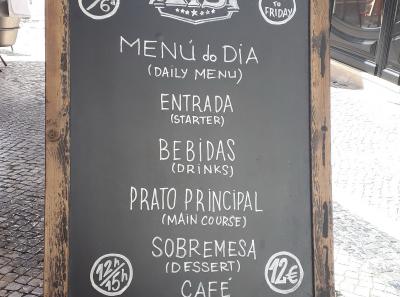 6ª
TO
FRIDAY
MENÚ do DIA
(DAILY MENU)
ENTRADA
(STARTER)
BEBIDAS
(DRINKS)
PRATO PRINCIPAL
(MAIN COURSE)
SOBREMESA
(DESSERT)
12h/15h
12€
CAFÉ